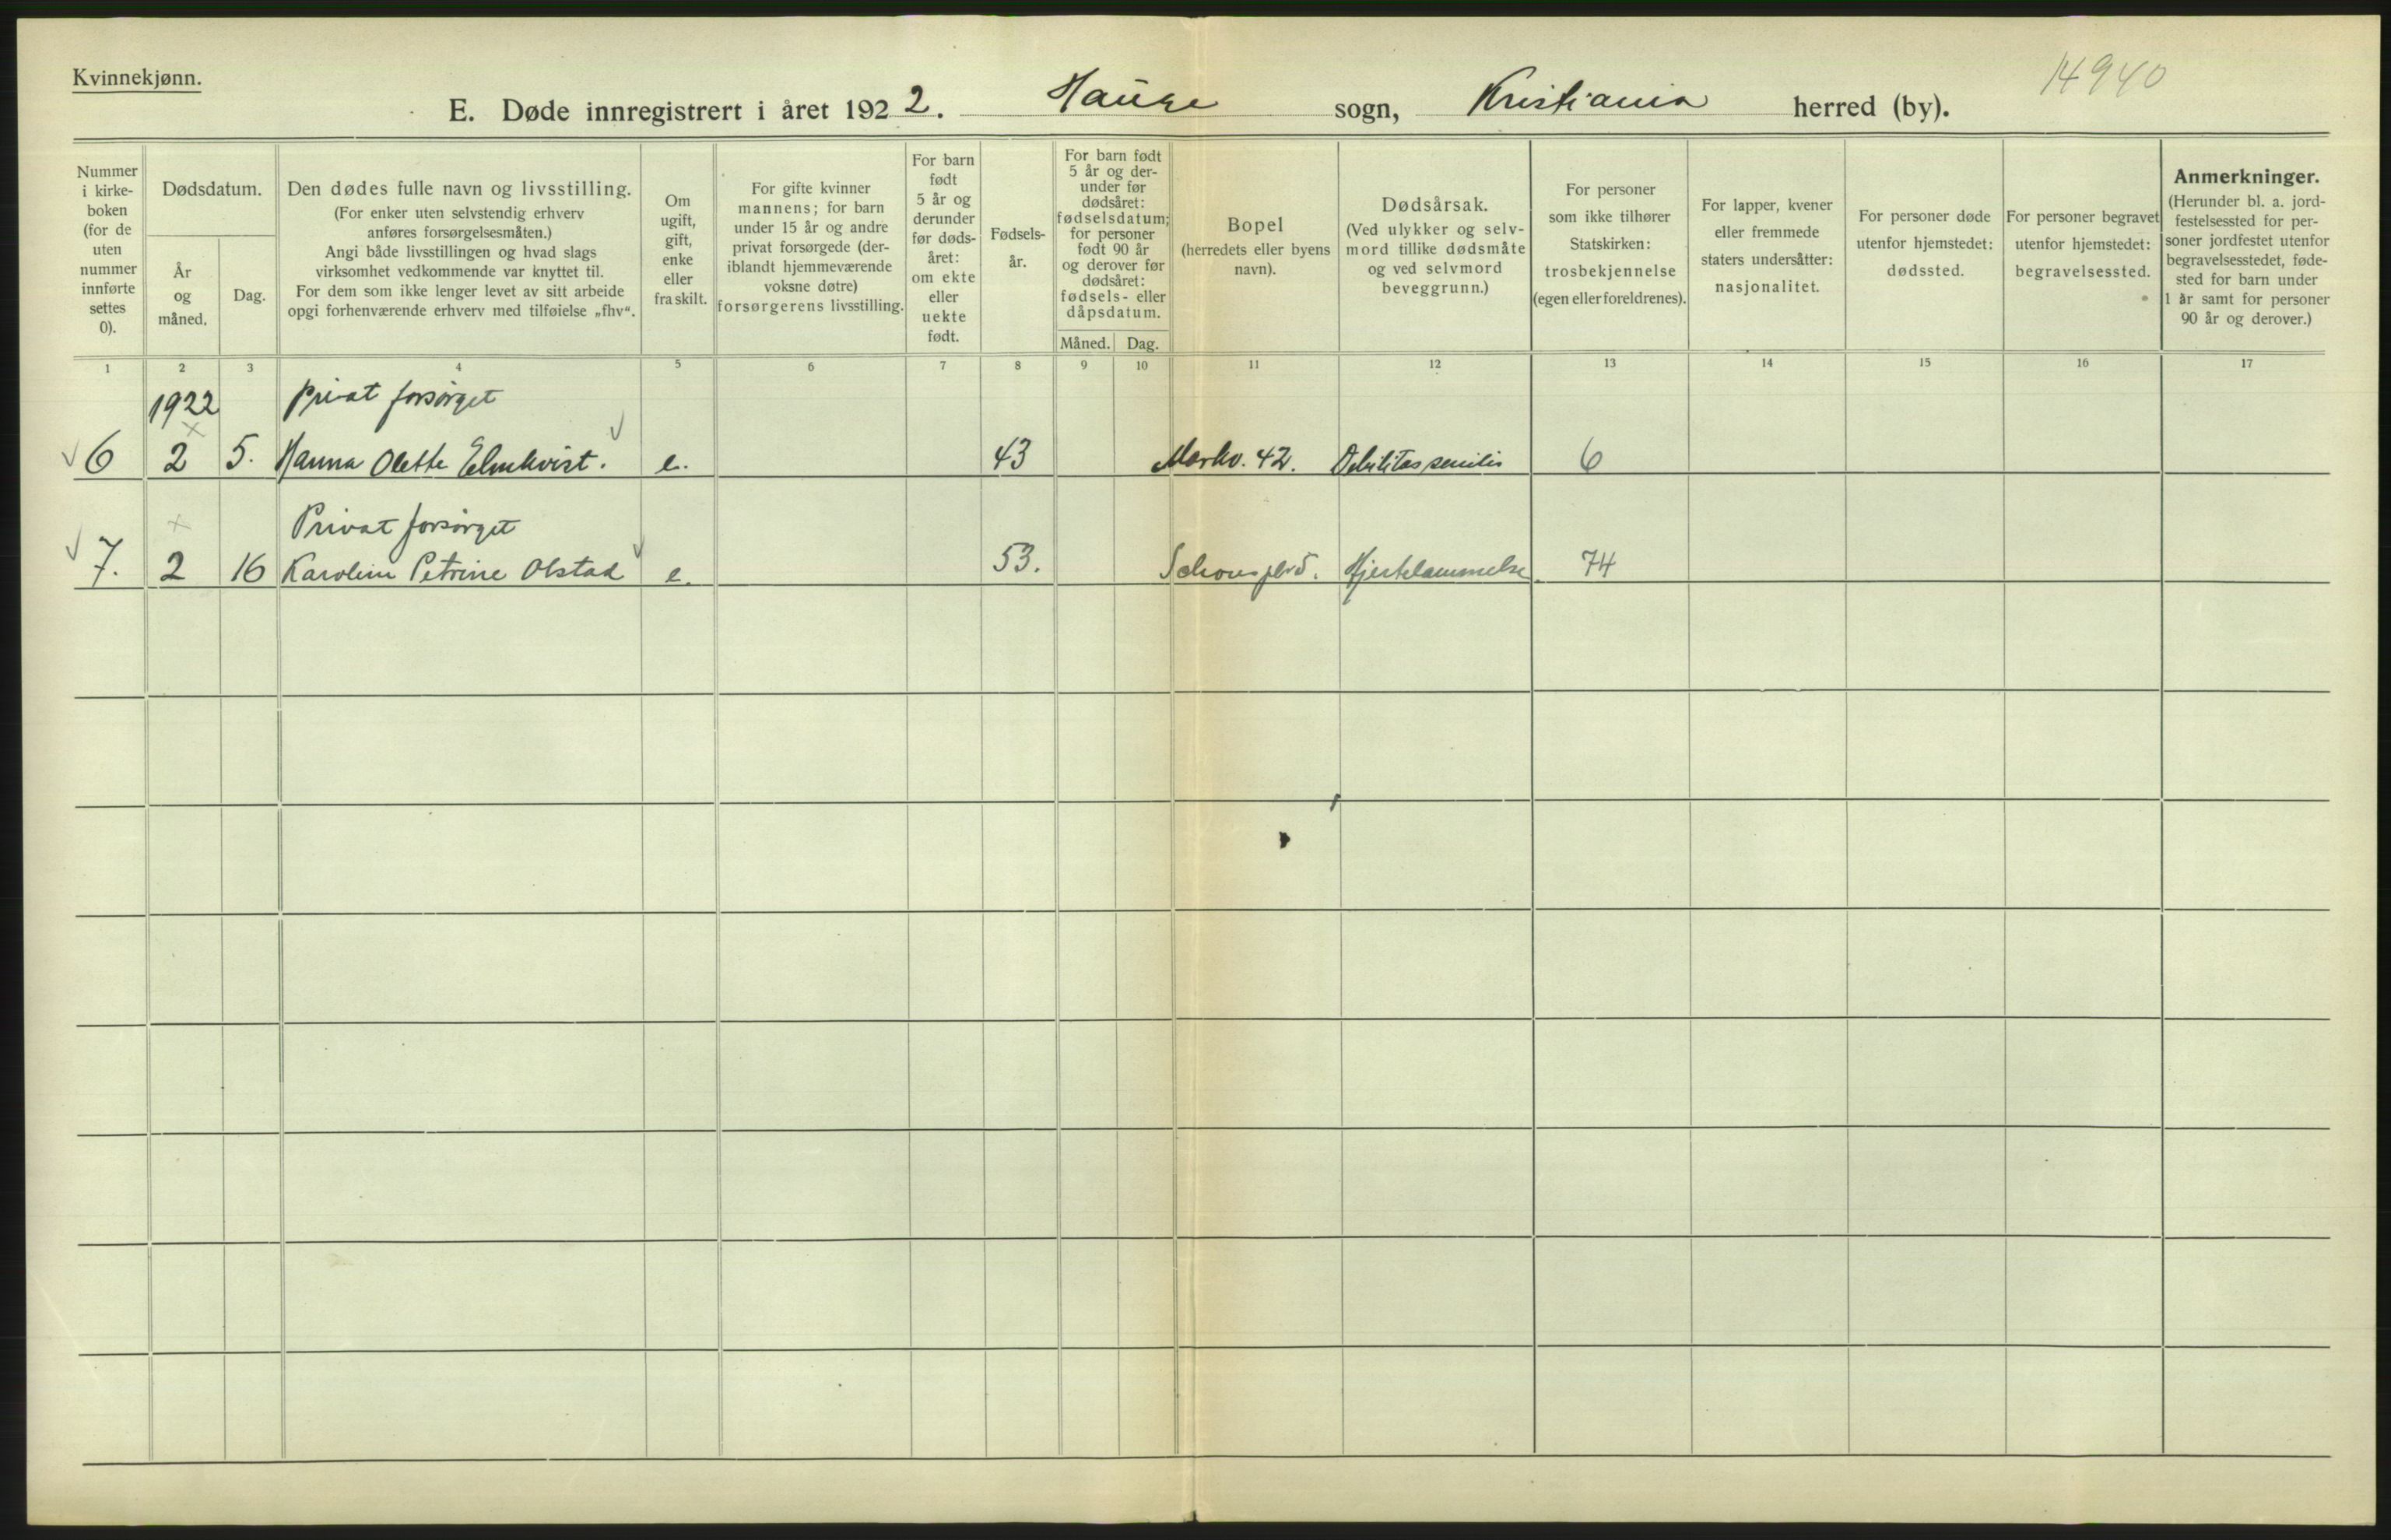 Kvinnekjønn.
14940
E. Døde innregistrert i året 1922. Hauge sogn, Kristiania herred (by).
Nummer
i kirke-
boken
(for de
uten
nummer
innførte
settes
0).
Dødsdatum.
År
og
måned.
Dag.
Den dødes fulle navn og livsstilling.
(For enker uten selvstendig erhverv
anføres forsørgelsesmåten.)
Angi både livsstillingen og hvad slags
virksomhet vedkommende var knyttet til.
For dem som ikke lenger levet av sitt arbeide
opgi forhenværende erhverv med tilføielse „fhv“.
Om
ugift,
gift,
enke
eller
fraskilt.
For gifte kvinner
mannens; for barn
under 15 år og andre
privat forsørgede (der-
iblandt hjemmeværende
voksne døtre)
forsørgerens livsstilling.
For barn
født
5 år og
derunder
før døds-
året:
om ekte
eller
uekte
født.
Fødsels-
år.
For barn født
5 år og der-
under før
dødsåret:
fødselsdatum;
for personer
født 90 år
og derover før
dødsåret:
fødsels- eller
dåpsdatum.
Måned. Dag.
Bopel
(herredets eller byens
navn).
Dødsårsak.
(Ved ulykker og selv-
mord tillike dødsmåte
og ved selvmord
beveggrunn.)
For personer
som ikke tilhører
Statskirken:
trosbekjennelse
(egen eller foreldrenes).
For lapper, kvener
eller fremmede
staters undersåtter:
nasjonalitet.
For personer døde
utenfor hjemstedet:
dødssted.
For personer begravet
utenfor hjemstedet:
begravelsessted.
Anmerkninger.
(Herunder bl. a. jord-
festelsessted for per-
soner jordfestet utenfor
begravelsesstedet, føde-
sted for barn under
1 år samt for personer
90 år og derover.)
1 2 3 4 5 6 7 8 9 10 11 12 13 14 15 16 17
1922 privat forsørget
6 2 5. Hanna Olette Elmkvist. e. 43 Markv. 42. Debilitas senilis 6
Privat forsørget
7. 2 16 Karoline Petrine Olstad e. 53. Schouspl. 5. Hjertelammelse. 74